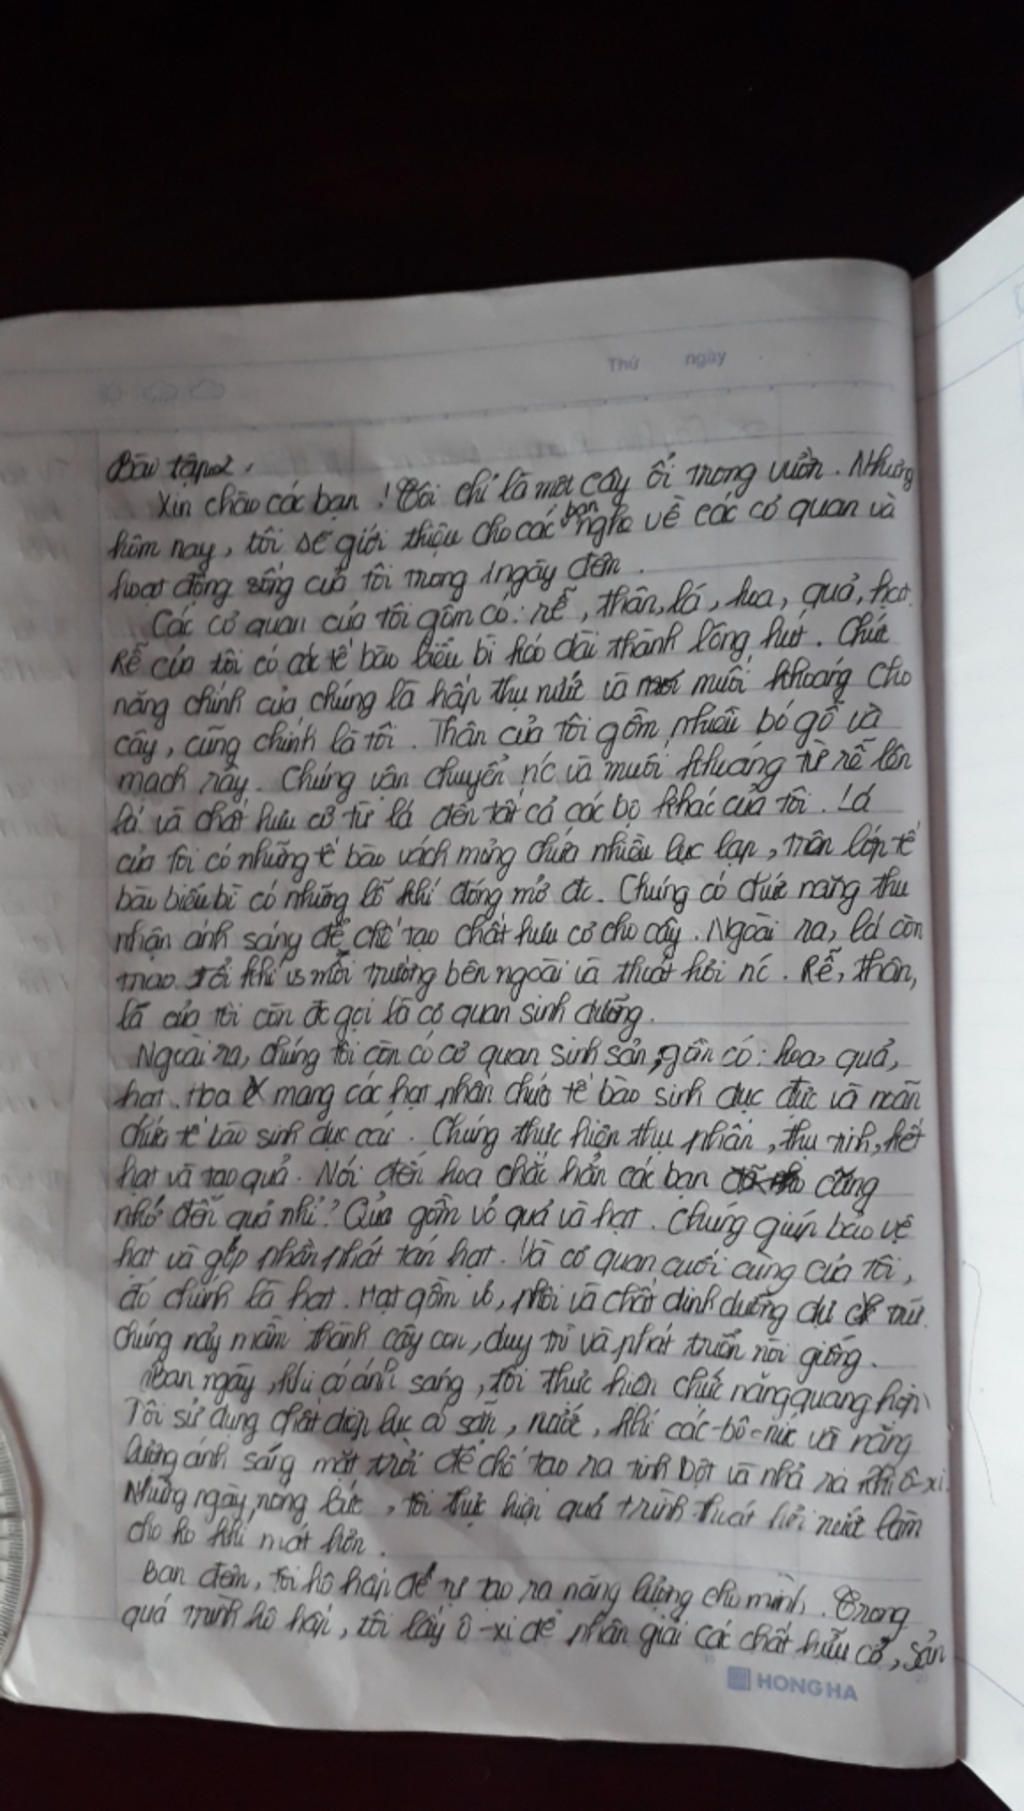 Thứ ngày
Bài tập 2.
Xin chào các bạn! Tôi chỉ là một cây ổi trong vườn. Nhưng
hôm nay, tôi sẽ giới thiệu cho các bạn nghe về các cơ quan và
hoạt động sống của tôi trong 1 ngày đêm.
Các cơ quan của tôi gồm có: rễ, thân, lá, hoa, quả, hạt.
Rễ của tôi có các tế bào biểu bì kéo dài thành lông hút. Chức
năng chính của chúng là hấp thụ nước và muối khoáng cho
cây, cũng chính là tôi. Thân của tôi gồm nhiều bó gỗ và
mạch rây. Chúng vận chuyển nc và muối khoáng từ rễ lên
lá và chất hữu cơ từ lá đến tất cả các bộ khác của tôi. Lá
của tôi có những tế bào vách mỏng chứa nhiều lục lạp, trên lớp tế
bào biểu bì có những lỗ khí đóng mở đc. Chúng có chức năng thu
nhận ánh sáng để chế tạo chất hữu cơ cho cây. Ngoài ra, lá còn
trao đổi khí vs môi trường bên ngoài và thoát hơi nc. Rễ, thân,
lá của tôi còn đc gọi là cơ quan sinh dưỡng.
Ngoài ra, chúng tôi còn có cơ quan sinh sản, gồm có: hoa, quả,
hạt. Hoa mang các hạt phấn chứa tế bào sinh dục đực và noãn
chứa tế bào sinh dục cái. Chúng thực hiện thụ phấn, thụ tinh, kết
hạt và tạo quả. Nói đến hoa chắc hẳn các bạn cũng
nhớ đến quả nhỉ? Quả gồm vỏ quả và hạt. Chúng giúp bảo vệ
hạt và góp phần phát tán hạt. Và cơ quan cuối cùng của tôi,
đó chính là hạt. Hạt gồm vỏ, phôi và chất dinh dưỡng dự trữ.
chúng nảy mầm thành cây con, duy trì và phát triển nòi giống.
Ban ngày, khi có ánh sáng, tôi thực hiện chức năng quang hợp.
Tôi sử dụng chất diệp lục có sẵn, nước, khí các-bô-níc và năng
lượng ánh sáng mặt trời để chế tạo ra tinh bột và nhả ra khí ô-xi.
Những ngày nóng bức, tôi thực hiện quá trình thoát hơi nước làm
cho ko khí mát hơn.
Ban đêm, tôi hô hấp để tự tạo ra năng lượng cho mình. Trong
quá trình hô hấp, tôi lấy ô-xi để phân giải các chất hữu cơ, sản
HONG HA